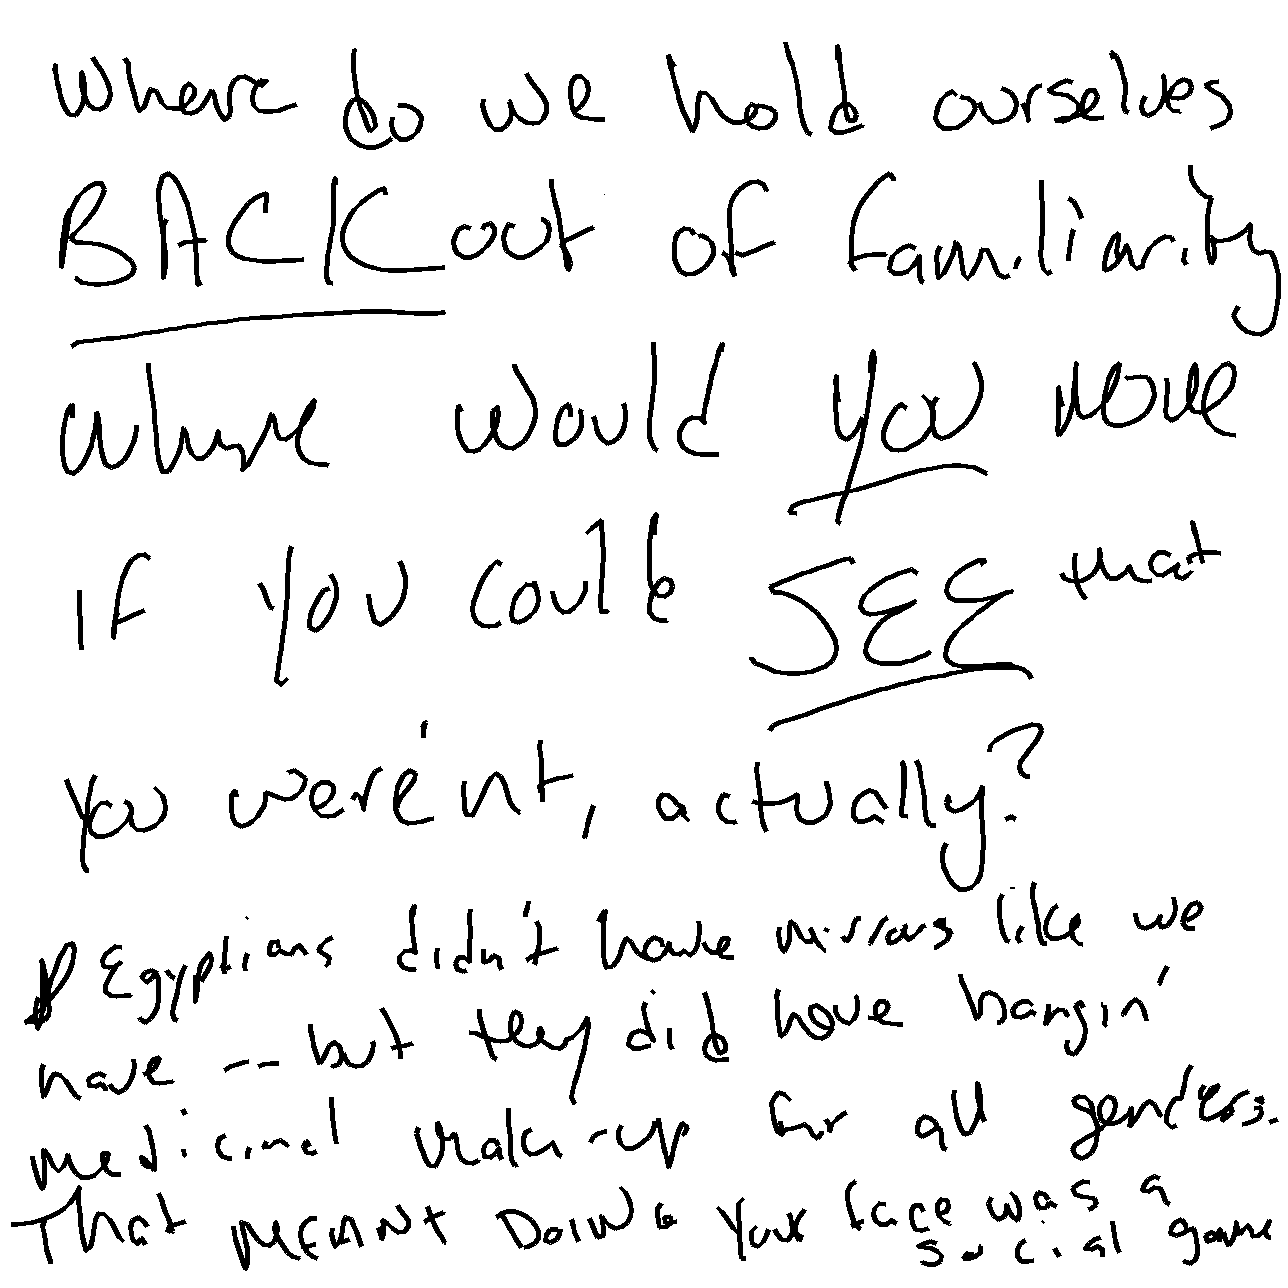 Where do we hold ourselves
BACK out of familiarity
where would you move
if you could SEE that
you were'nt, actually?
Egyptians didn't have mirrors like we
have -- but they did have bangin'
medicinal make-up for all genders.
That MEANT DOING your face was a
social game